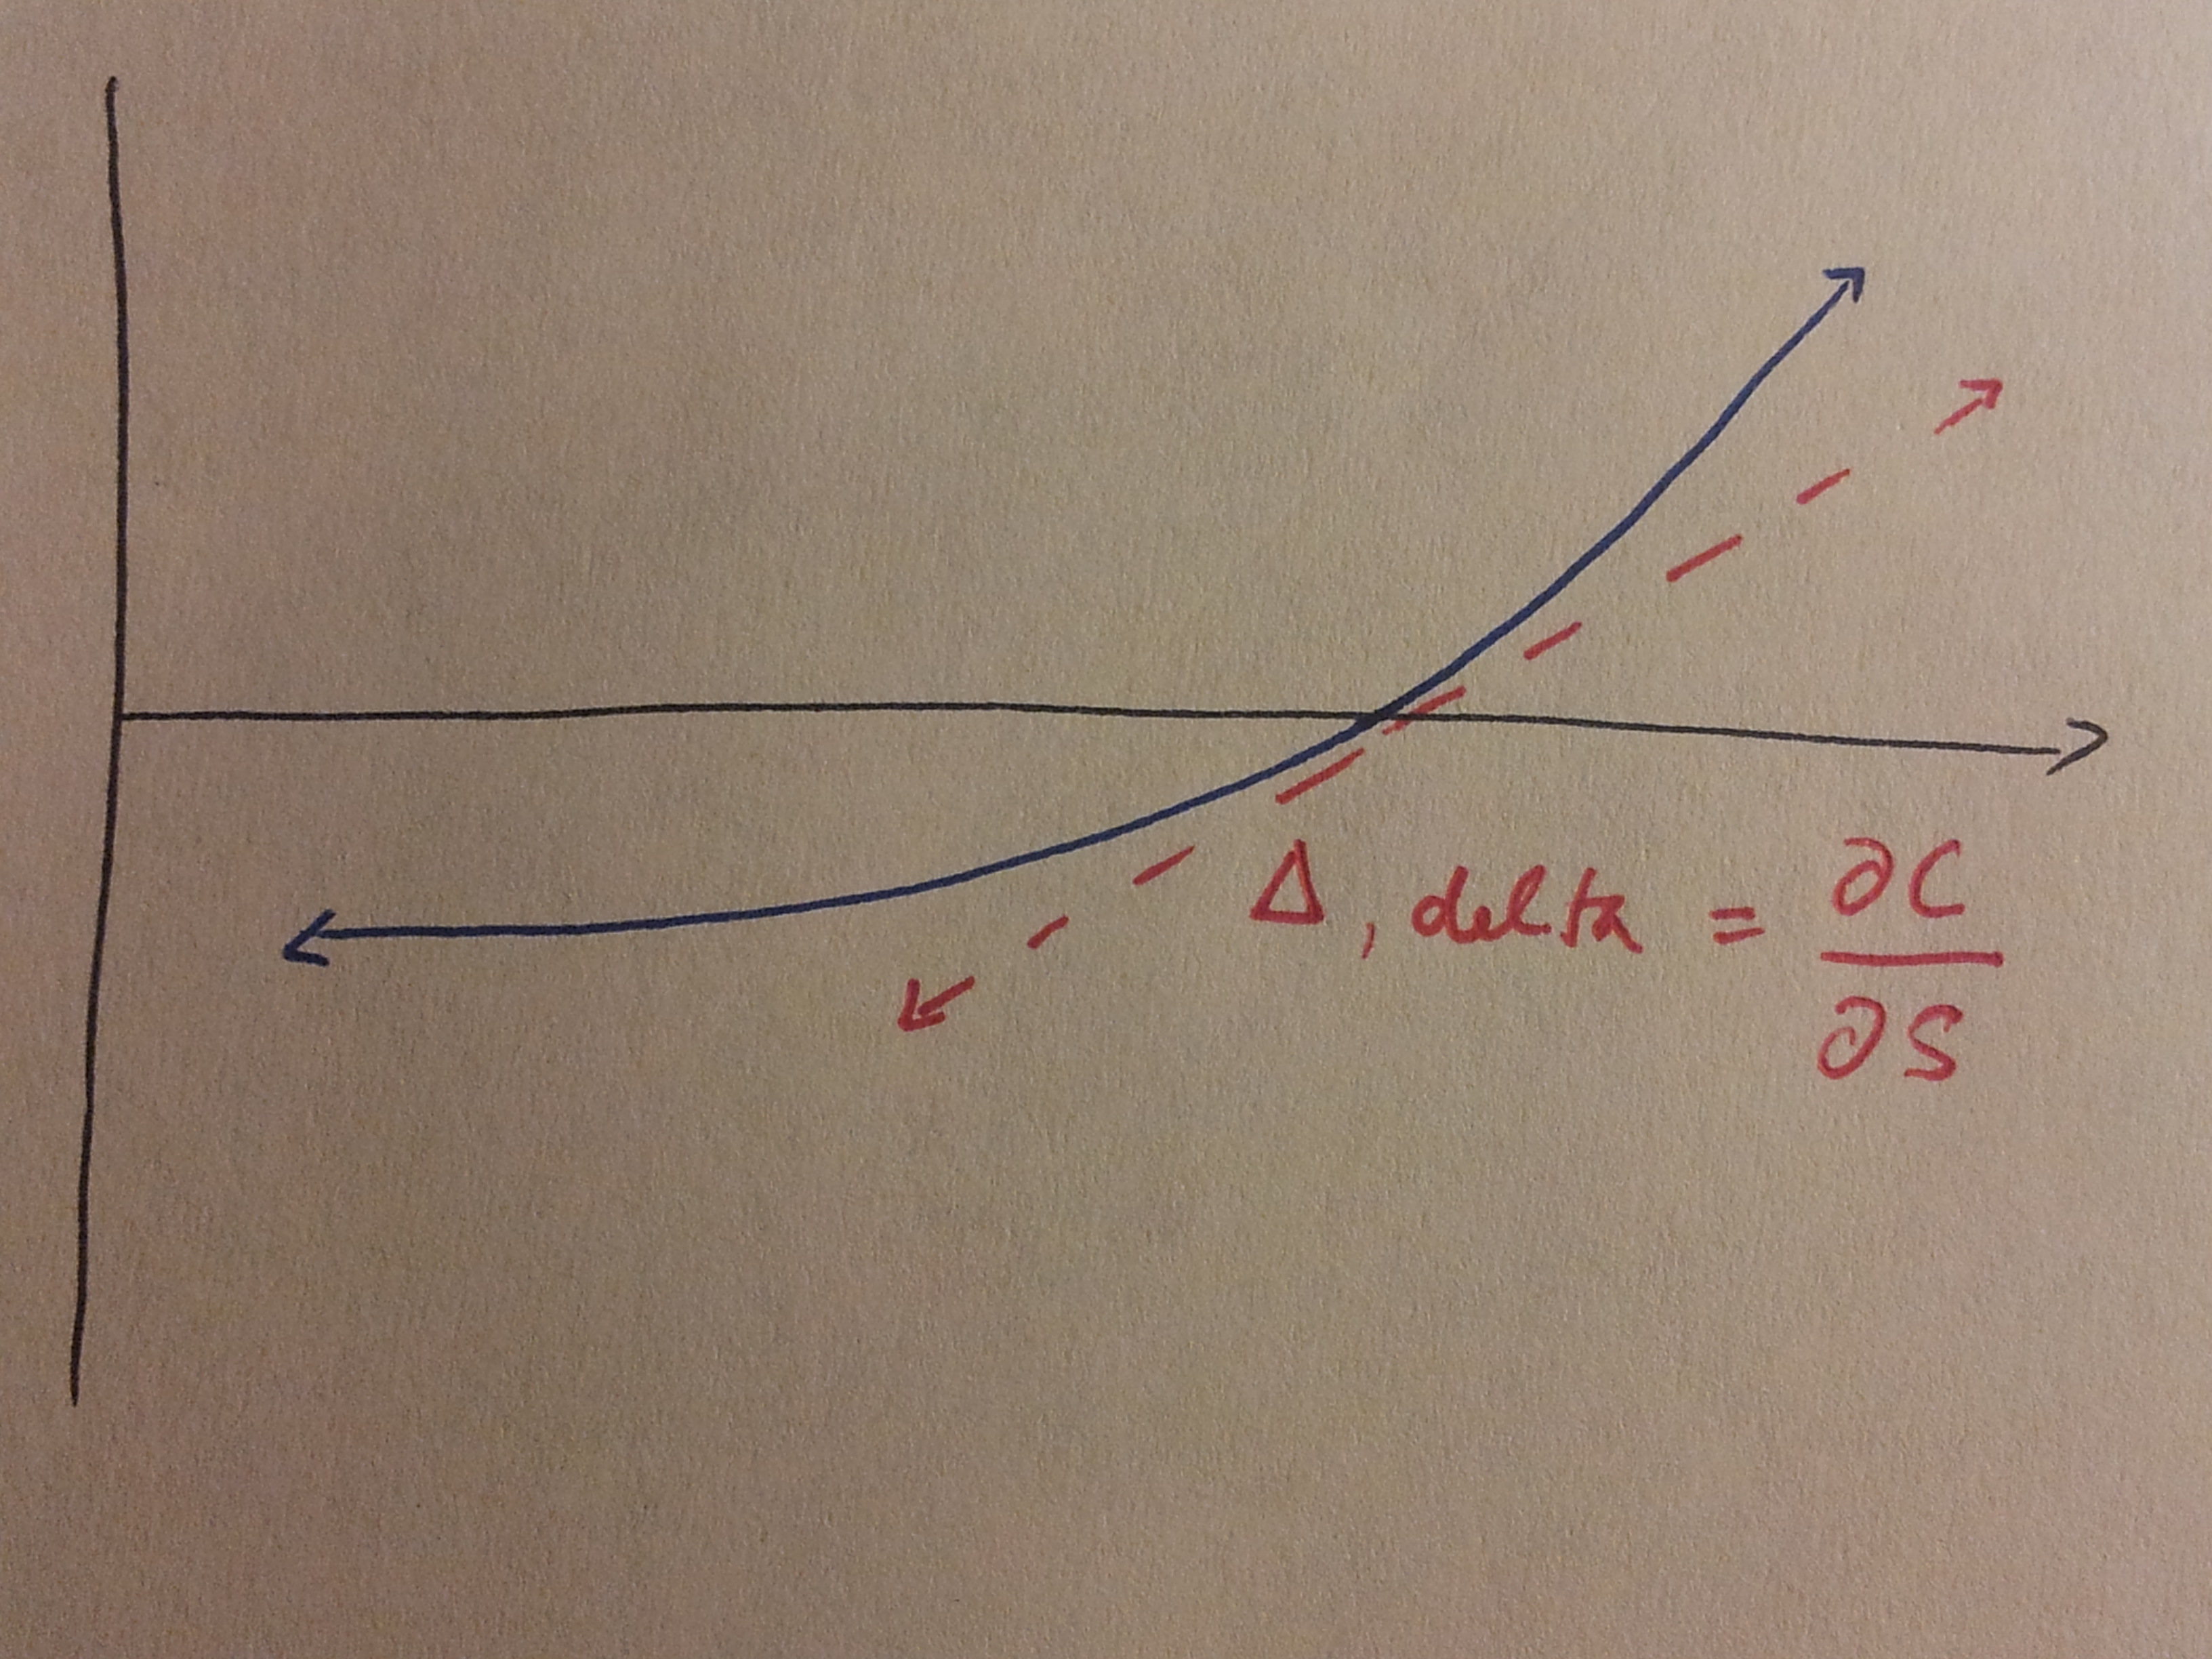 Δ, delta = ∂C
∂S